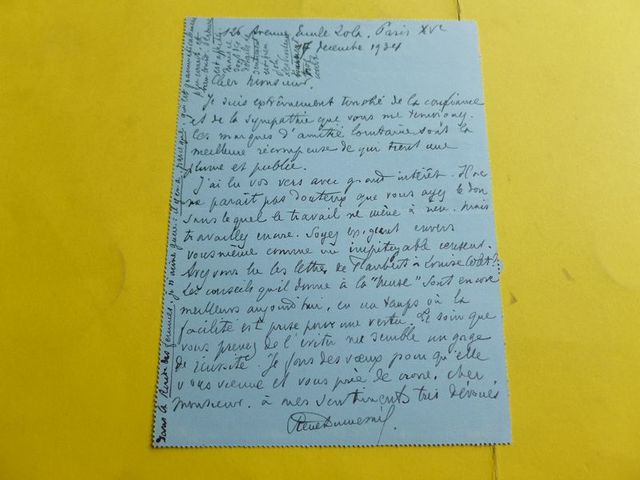 126 Avenue Emile Zola. Paris XVe
17 décembre 1931
Cher Monsieur.
Je suis extrêmement touché de la confiance
et de la sympathie que vous me témoignez.
Les marques d'amitié lointaine sont la
meilleure récompense de qui tient une
plume et publie.
J'ai lu vos vers avec grand intérêt. Il ne
me paraît pas douteux que vous ayez le don
sans lequel le travail ne mène à rien. Mais
travaillez encore. Soyez exigeant envers
vous même comme un impitoyable censeur.
Avez vous lu les lettres de Flaubert à Louise Colet?
Les conseils qu'il donne à la "muse" sont encore
meilleurs aujourd'hui, en un temps où la
facilité est prise pour une vertu. Le soin que
vous prenez de l'éviter me semble un gage
de réussite. Je fais des vœux pour qu'elle
vous vienne et vous prie de croire, cher
monsieur, à mes sentiments très dévoués
René Dumesnil
Dans le
je n'aime guère